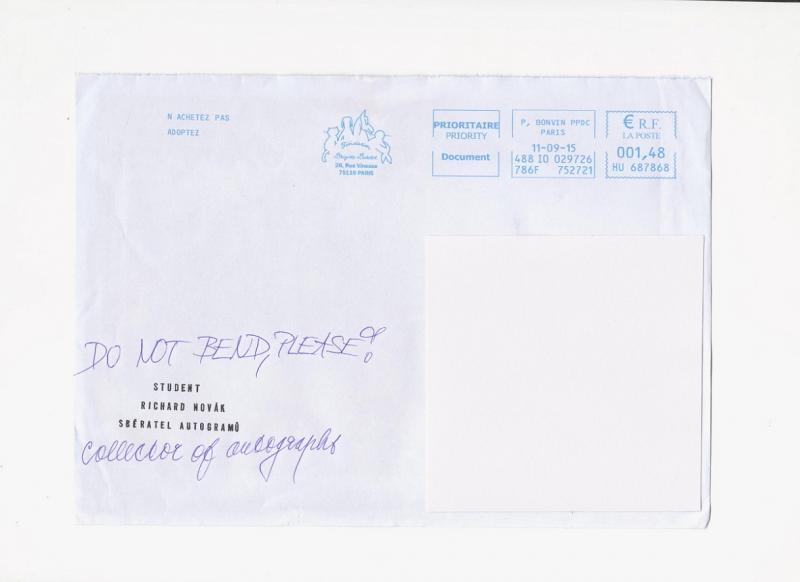 N ACHETEZ PAS
ADOPTEZ
Fondation
Brigitte Bardot
28, Rue Vineuse
75116 PARIS
PRIORITAIRE
PRIORITY
Document
P, BONVIN PPDC
PARIS
11-09-15
488 IO 029726
786F 752721
€ R.F.
LA POSTE
001,48
HU 687868
DO NOT BEND, PLEASE!
STUDENT
RICHARD NOVÁK
SBĚRATEL AUTOGRAMŮ
collector of autographs